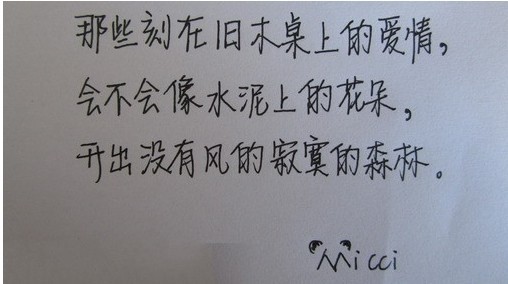 那些刻在旧木桌上的爱情，
会不会像水泥上的花朵，
开出没有风的寂寞的森林。
Micci